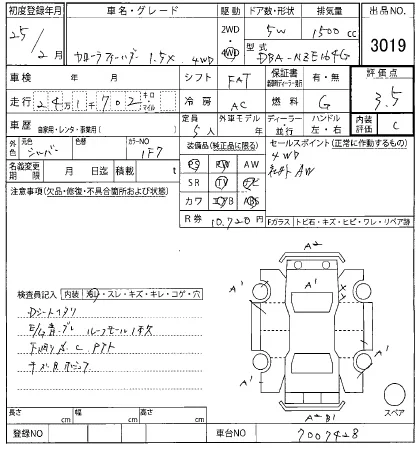 初度登録年月 車名・グレード 駆動 ドア数・形状 排気量 出品NO.
25/2月 カローラフィールダー 1.5X 4WD 2WD・4WD 5W 1500cc 3019
型式 DBA-NZE164G
車検 年 月 シフト FAT 保証書 有・無 評価点 3.5
走行 24万1千702 キロ マイル 冷房 AC 燃料 G
車歴 自家用・レンタ・事業用( ) 定員 5人 外車モデル 年 ディーラー 並行 ハンドル 左・右 内装評価 C
外色 元色 シルバー 色替 カラーNO 1F7 装備品(純正品に限る) セールスポイント(正常に作動するもの)
PS PW AW 4WD
名義変更 月 日迄 積載 t SR TV ナビ 社外AW
注意事項(欠品・修復・不具合箇所および状態) カワ エアB ABS
R券 10,720円 Fガラス トビ石・キズ・ヒビ・ワレ・リペア跡
A2
A' A1 A'
検査員記入 内装 汚レ・スレ・キズ・キレ・コゲ・穴
Dシートスリ
ルーフモール
下廻り
A' A1 A'
A2B1 スペア
長さ cm 幅 cm 高さ cm
登録NO 車台NO 7007428